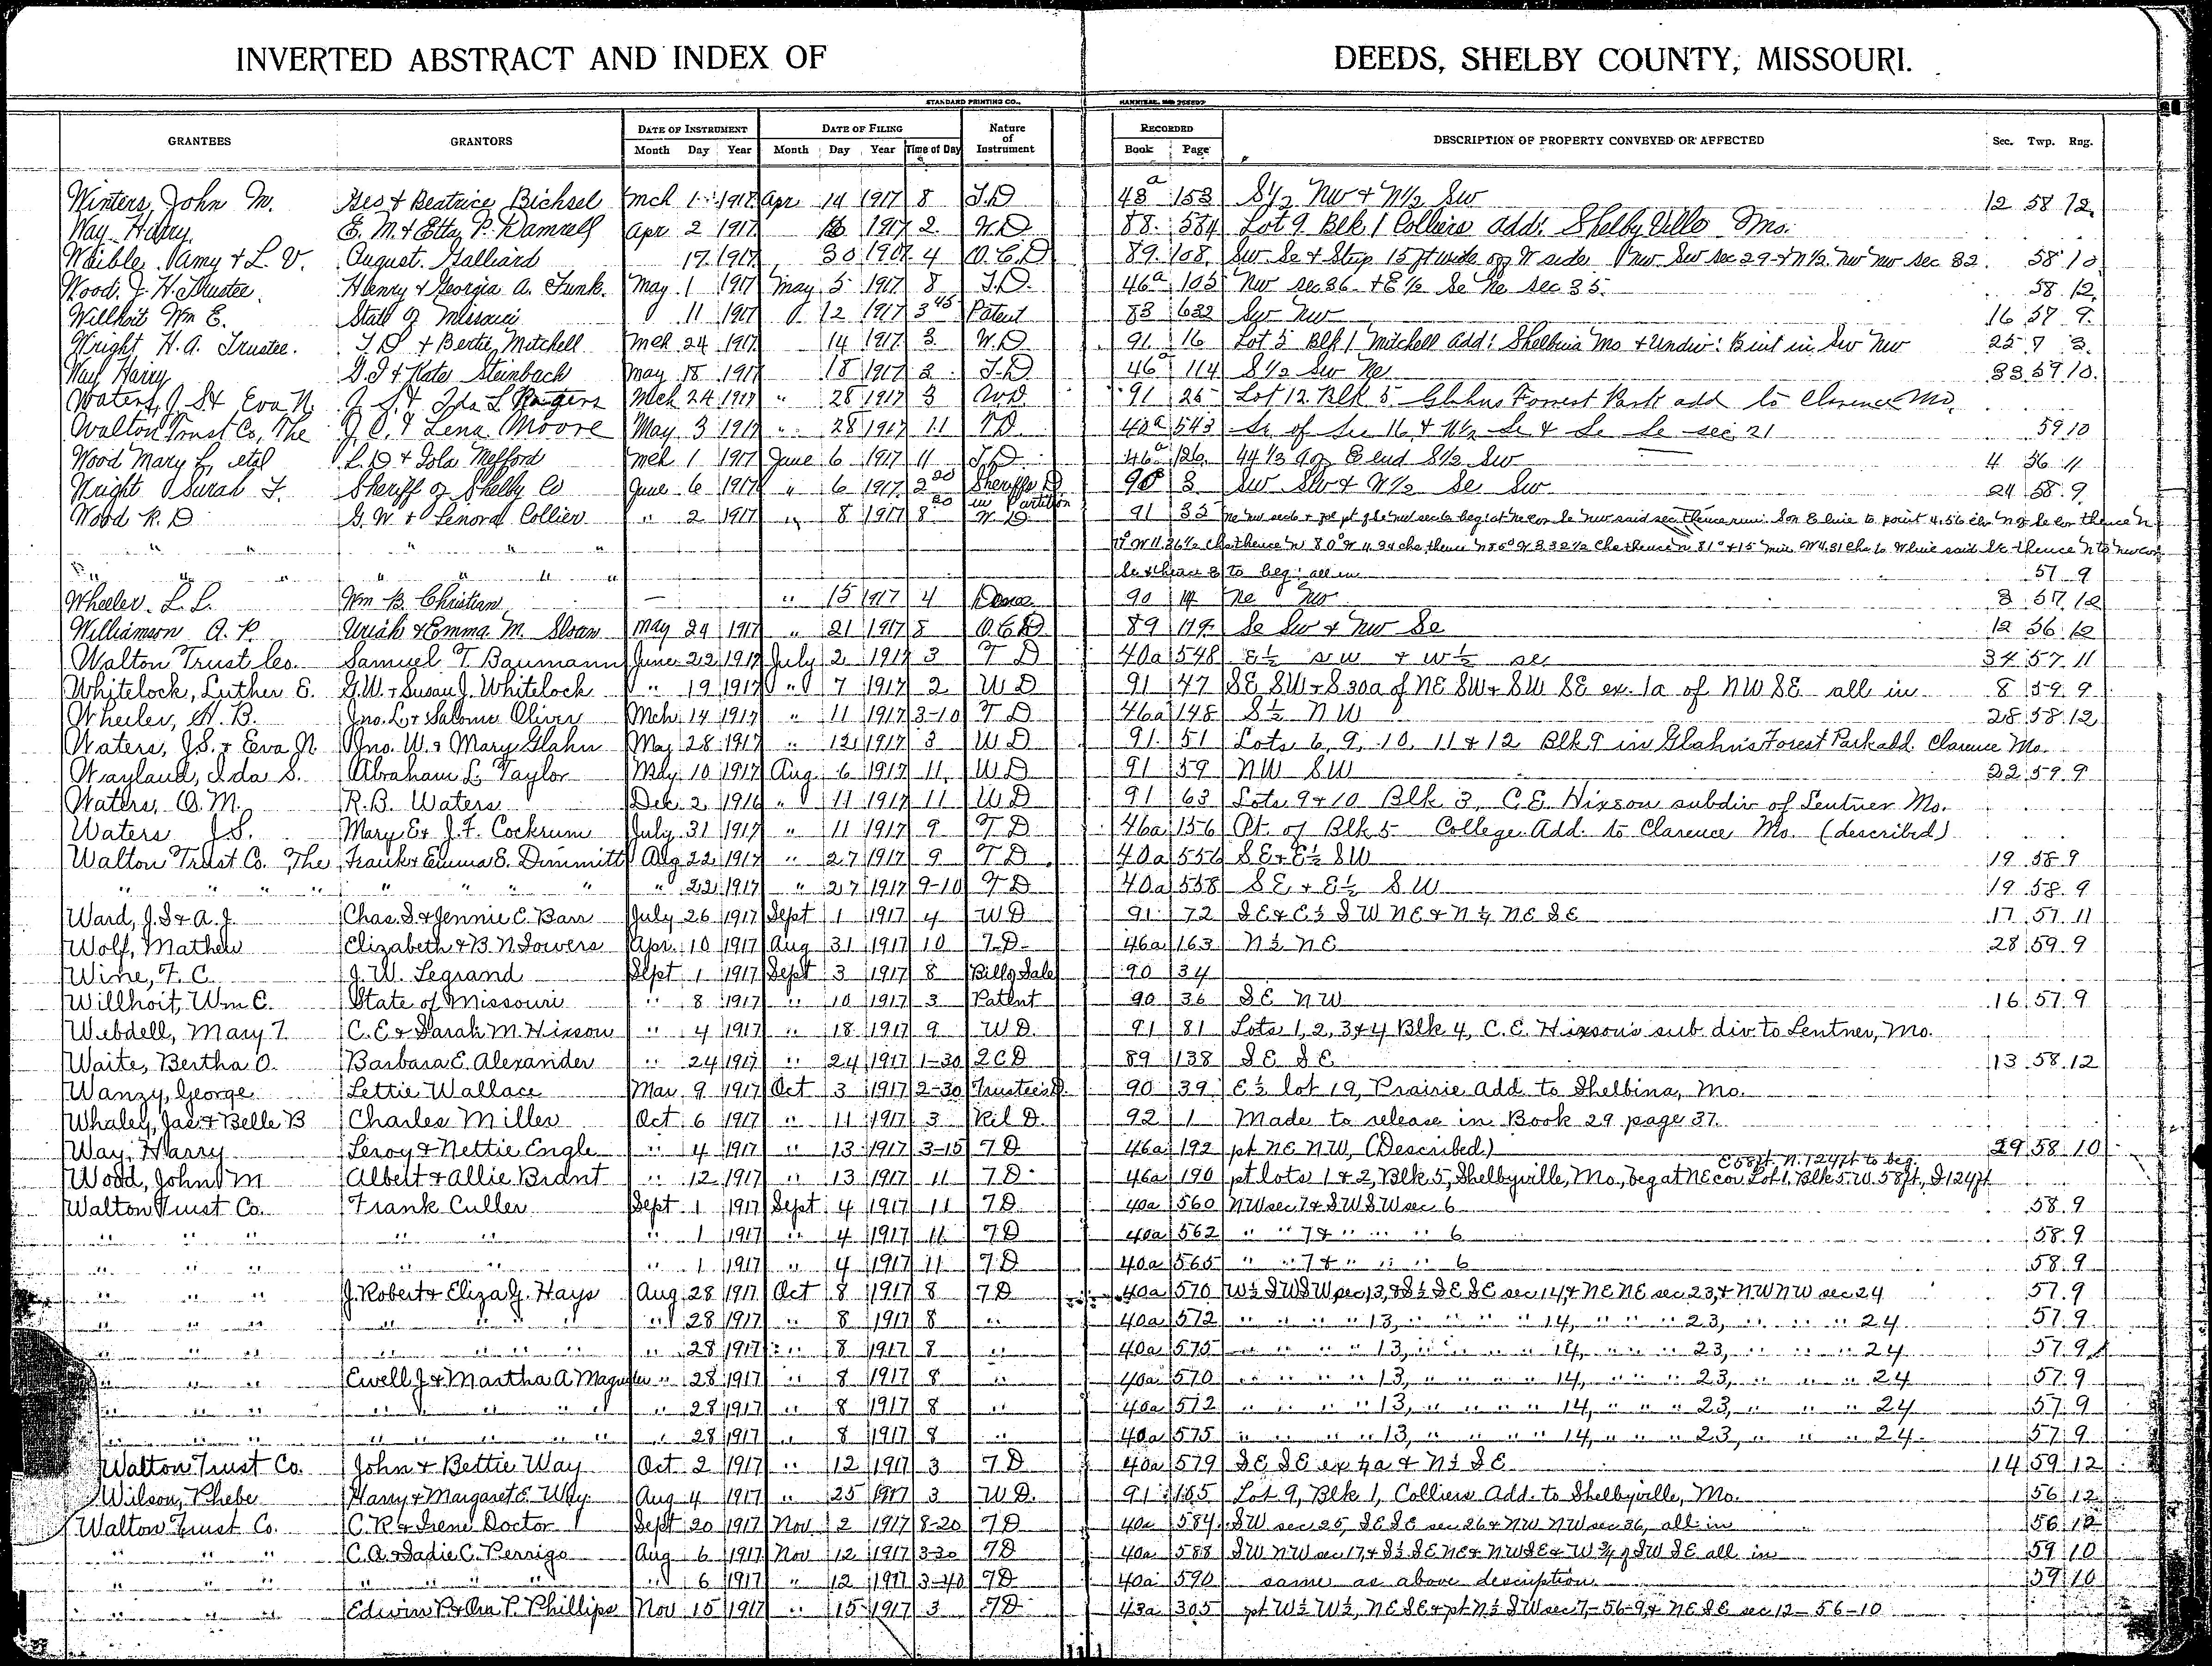 INVERTED ABSTRACT AND INDEX OF DEEDS, SHELBY COUNTY, MISSOURI.
STANDARD PRINTING CO., HANNIBAL, MO
GRANTEES GRANTORS DATE OF INSTRUMENT DATE OF FILING Nature of Instrument RECORDED DESCRIPTION OF PROPERTY CONVEYED OR AFFECTED Sec. Twp. Rng.
Month Day Year Month Day Year Time of Day Book Page
Winters, John M. Geo & Beatrice Bichsel Mch 1 1918 Apr 14 1917 8 T.D 43a 153 S½ NW & N½ SW 12 58 12
Way Harry E. M. & Etta P. Damrell Apr 2 1917 1917 2 W.D 88 584 Lot 9 Blk 1 Colliers add. Shelbyville Mo.
Weible Amy & L. V. August Galliard 17 1917 30 1917 4 Q.C.D 89 108 Sw Se & Strip 15 ft wide off W side Nw Sw sec 29 & N½ Nw Nw Sec 32. 58 10
Wood, J. H. Trustee Henry & Georgia A. Funk. May 1 1917 May 5 1917 8 T.D. 46a 105 Nw sec 36 & E½ Se Ne sec 35. 58 12
Willhoit Wm E. State of Missouri 11 1917 12 1917 3 45 Patent 83 632 Sw Nw 16 57 9
Wright H. A. Trustee. T D & Bertie Mitchell Mch 24 1917 14 1917 3 W.D 91 16 Lot 5 Blk 1 Mitchell add: Shelbina Mo & Undiv: int in Sw Nw
Way Harry D. J & Kate Steinbach May 18 1917 18 1917 2 T.D 46a 114 S½ Sw Ne 33 59 10
Waters, J S & Eva N. J. S. & Ida L Rogers Mch 24 1917 " 28 1917 3 W.D 91 25 Lot 12 Blk 5 Glahns Forrest Park add to Clarence Mo.
Walton Trust Co, The J. O. & Lena Moore May 3 1917 " 28 1917 11 T.D. 40a 543 Se of Sec 16 & N½ Se & Se Se sec 21 59 10
Wood Mary L. etal L. D & Iola Melford Mch 1 1917 June 6 1917 11 T.D. 46a 126 44⅓ a off E end S½ Sw 4 56 11
Wright Sarah F. Sheriff of Shelby Co June 6 1917 " 6 1917 2 20 Sheriffs D in Partition 90 3 Sw Sw & N½ Se Sw 24 58 9
Wood R. D G. W & Lenora Collier " 2 1917 " 8 1917 8 20 W D 91 33
" " " " "
" " " " " Se & thence E to beg: all in 57 9
Wheeler. L. L. Wm B. Christian — " 15 1917 4 90 14 Ne Nw 3 57 12
Williamson A. P. Uriah & Emma M. Sloan May 24 1917 " 21 1917 8 Q.C.D. 89 119 Se Sw & Nw Se 12 56 12
Walton Trust Co. Samuel T. Baumann June 22 1917 July 2 1917 3 T D 40a 548 E½ sw & W½ se 34 57 11
Whitelock, Luther E. G.W. & Susan J. Whitelock " 19 1917 " 7 1917 2 W D 91 47 SE SW & S 30a of NE SW & SW SE ex. 1a of NW SE all in 8 59 9
Wheeler, H. B. Jno. L. & Salome Oliver Mch 14 1917 " 11 1917 3-10 T D 46a 148 S½ NW 28 58 12
Waters, J.S. & Eva N Jno. W. & Mary Glahn May 28 1917 " 12 1917 3 W D 91 51 Lots 6, 9, 10, 11 & 12 Blk 9 in Glahn's Forest Park add. Clarence Mo.
Wayland, Ida S. Abraham L. Taylor May 10 1917 Aug 6 1917 11 W D 91 59 NW SW 22 59 9
Waters, O. M. R. B. Waters Dec 2 1916 " 11 1917 11 W D 91 63 Lots 9 & 10 Blk 3, C.E. Hixson subdiv of Lentner Mo.
Waters J.S. Mary E & J. F. Cockrum July 31 1917 " 11 1917 9 T D 46a 156 Pt. of Blk 5 College Add. to Clarence Mo. (described)
Walton Trust Co. The Frank & Emma E. Dimmitt Aug 22 1917 " 27 1917 9 T D 40a 556 SE & E½ SW 19 58 9
" " " " " " " " " 22 1917 " 27 1917 9-10 T D 40a 558 SE & E½ SW 19 58 9
Ward, J.S & A.J. Chas. S. & Jennie C. Barr July 26 1917 Sept 1 1917 4 W D 91 72 SE & E½ SW NE & N½ NE SE 17 57 11
Wolf, Mathew Elizabeth & B. N Sowers Apr. 10 1917 Aug 31 1917 10 T.D. 46a 163 N½ NE 28 59 9
Wine, F. C. J. W. Legrand Sept 1 1917 Sept 3 1917 8 Bill of Sale 90 34
Willhoit, Wm E. State of Missouri " 8 1917 " 10 1917 3 Patent 90 36 SE NW 16 57 9
Webdell, Mary T. C. E & Sarah M. Hixson " 4 1917 " 18 1917 9 W D. 91 81 Lots 1, 2, 3 & 4 Blk 4, C. E. Hixson's sub. div. to Lentner, Mo.
Waite, Bertha O. Barbara E. Alexander " 24 1917 " 24 1917 1-30 QCD 89 138 SE SE 13 58 12
Wanzy, George Lettie Wallace Mar 9 1917 Oct 3 1917 2-30 Trustee's D. 90 39 E½ lot 19, Prairie Add to Shelbina, Mo.
Whaley, Jas & Belle B Charles Miller Oct 6 1917 " 11 1917 3 Rel D. 92 1 Made to release in Book 29 page 37.
Way, Harry Leroy & Nettie Engle " 4 1917 " 13 1917 3-15 T D 46a 192 pt NE NW, (Described) 29 58 10
Wood, John M Albert & Allie Brant " 12 1917 " 13 1917 11 T D 46a 190 pt lots 1 & 2, Blk 5, Shelbyville, Mo., beg at NE cor Lot 1, Blk 5, W. 58 ft, S 124 ft E 58 ft. N. 124 ft to beg.
Walton Trust Co. Frank Culler Sept 1 1917 Sept 4 1917 11 T D 40a 560 NW sec 7 & SW SW sec 6 58 9
" " " " " " 1 1917 " 4 1917 11 T D 40a 562 " " 7 & " " " 6 58 9
" " " " " " 1 1917 " 4 1917 11 T D 40a 565 " " 7 & " " " 6 58 9
" " " J. Robert & Eliza J. Hays Aug 28 1917 Oct 8 1917 8 T D 40a 570 W½ SW SW sec 13, & S½ SE SE sec 14, & NE NE sec 23, & NW NW sec 24 57 9
" " " " " " " " 28 1917 " 8 1917 8 " 40a 572 " " " " 13, " " " " 14, " " " 23, " " " 24 57 9
" " " " " " " " 28 1917 " 8 1917 8 " 40a 575 " " " " 13, " " " " 14, " " " 23, " " " 24 57 9
" " " Ewell J & Martha A Magruder " 28 1917 " 8 1917 8 " 40a 570 " " " " 13, " " " " 14, " " " 23, " " " 24 57 9
" " " " " " " " " 28 1917 " 8 1917 8 " 40a 572 " " " " 13, " " " " 14, " " " 23, " " " 24 57 9
" " " " " " " " " 28 1917 " 8 1917 8 " 40a 575 " " " " 13, " " " " 14, " " " 23, " " " 24 57 9
Walton Trust Co. John & Bettie Way Oct 2 1917 " 12 1917 3 T D 40a 579 SE SE ex ½a & N½ SE 14 59 12
Wilson, Phebe Harry & Margaret E. Way Aug 4 1917 " 25 1917 3 W D. 91 105 Lot 9, Blk 1, Colliers Add. to Shelbyville, Mo. 56 12
Walton Trust Co. C. R & Irene Doctor Sept 20 1917 Nov 2 1917 8-20 T D 40a 584 SW sec 25, SE SE sec 26 & NW NW sec 36, all in 56 12
" " " C. A. & Sadie C. Perrigo Aug 6 1917 Nov 12 1917 3-30 T D 40a 588 SW NW sec 17 & S½ SE NE & NW SE & W ¾ of SW SE all in 59 10
" " " " " " " " 6 1917 " 12 1917 3-40 T D 40a 590 same as above description 59 10
" " " Edwin P. & Ora P. Phillips Nov 15 1917 " 15 1917 3 T D 43a 305 pt W½ W½, NE SE & pt N½ SW sec 7-56-9, & NE SE sec 12-56-10